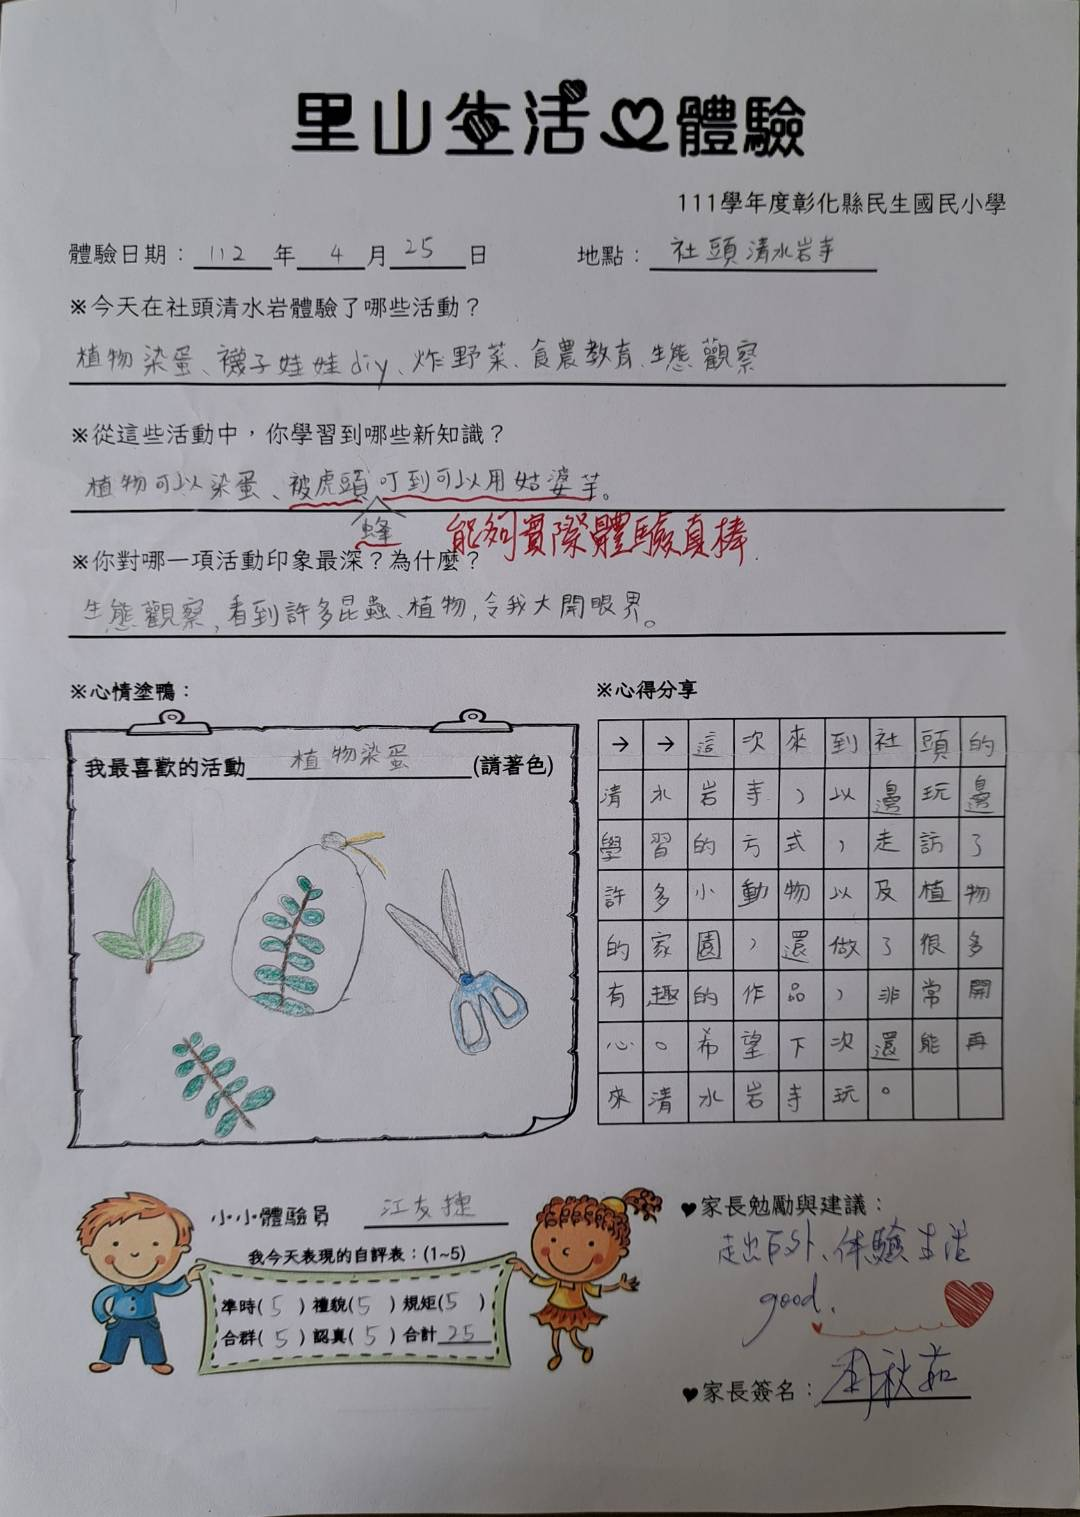 里山生活體驗
111學年度彰化縣民生國民小學
體驗日期：112年4月25日 地點：社頭清水岩寺
※今天在社頭清水岩體驗了哪些活動？
植物染蛋、襪子娃娃diy、炸野菜、食農教育、生態觀察
※從這些活動中，你學習到哪些新知識？
植物可以染蛋、被虎頭叮到可以用姑婆芋。
蜂
能夠實際體驗真棒.
※你對哪一項活動印象最深？為什麼？
生態觀察,看到許多昆蟲、植物,令我大開眼界。
※心情塗鴨：
我最喜歡的活動植物染蛋(請著色)
※心得分享
→→這次來到社頭的
清水岩寺，以邊玩邊
學習的方式，走訪了
許多小動物以及植物
的家園，還做了很多
有趣的作品，非常開
心。希望下次還能再
來清水岩寺玩。
小小體驗員 江友捷
我今天表現的自評表：(1~5)
準時(5)禮貌(5)規矩(5)
合群(5)認真(5)合計25
♥家長勉勵與建議：
走出戶外、体驗生活
good.
♥家長簽名：秋茹